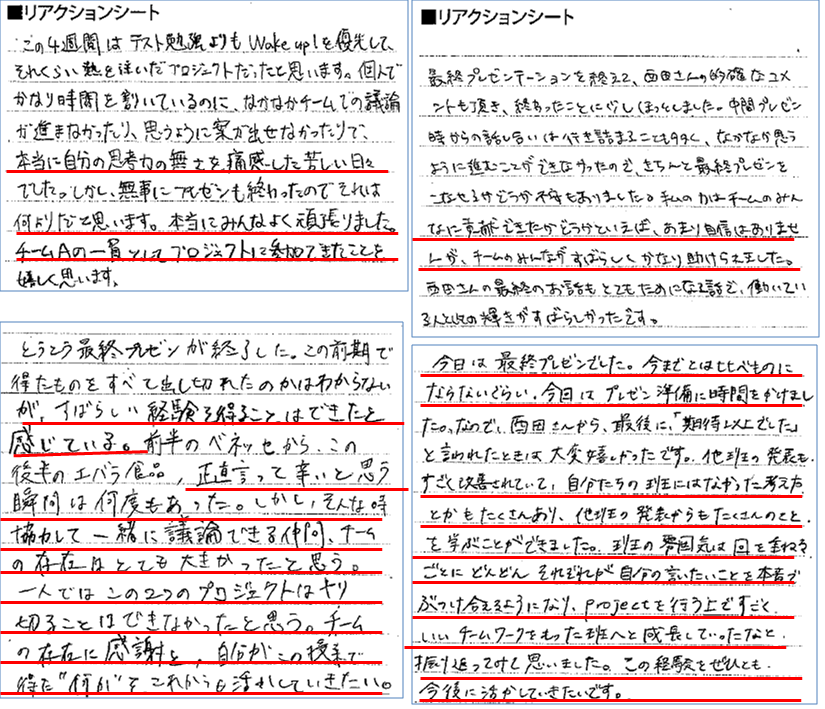 ■リアクションシート
この4週間はテスト勉強よりもWake up!を優先して、
それくらい熱を注いだプロジェクトだったと思います。個人で
かなり時間を割いているのに、なかなかチームでの議論
が進まなかったり、思うように案が出せなかったりで、
本当に自分の思考力の無さを痛感した苦しい日々
でした。しかし、無事にプレゼンも終わったのでそれは
何よりだと思います。本当にみんなよく頑張りました。
チームAの一員としてプロジェクトに参加できたことを
嬉しく思います。
■リアクションシート
最終プレゼンテーションを終えて、西田さんの的確なコメ
ントも頂き、終わったことに少しほっとしました。中間プレゼン
時からの話し合いは行き詰まることも多く、なかなか思う
ように進むことができなかったので、きちんと最終プレゼンを
こなせるかどうか不安もありました。私の力はチームのみん
なに貢献できたかどうかといえば、あまり自信はありませ
んが、チームのみんながすばらしくかなり助けられました。
西田さんの最終のお話もとてもためになる話で、働いてい
る人との輝きがすばらしかったです。
とうとう最終プレゼンが終了した。この前期で
得たものをすべて出し切れたのかはわからない
が、すばらしい経験を得ることはできたと
感じている。前半のベネッセから、この
後半のエバラ食品、正直言って辛いと思う
瞬間は何度もあった。しかし、そんな時
協力して一緒に議論できる仲間、チーム
の存在はとても大きかったと思う。
一人ではこの2つのプロジェクトはやり
切ることはできなかったと思う。チーム
の存在に感謝を、自分がこの授業で
得た"何か"をこれからも活かしていきたい。
今日は最終プレゼンでした。今までとは比べものに
ならないぐらい、今日はプレゼン準備に時間をかけまし
た。なので、西田さんから、最後に、「期待以上でした」
と言われたときは大変嬉しかったです。他班の発表も
すごく改善されていて、自分たちの班にはなかった考え方
とかもたくさんあり、他班の発表からもたくさんのこと
を学ぶことができました。班の雰囲気は回を重ねる
ごとにどんどんそれぞれが自分の言いたいことを本音で
ぶつけ合えるようになり、projectを行う上ですごく
いいチームワークをもった班へと成長していったなと
振り返ってみて思いました。この経験をぜひとも
今後に活かしていきたいです。